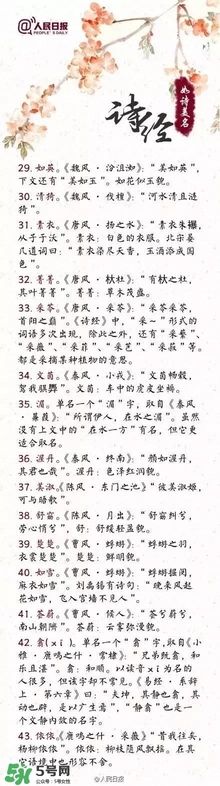 人民日报
PEOPLE'S DAILY
如诗美名
诗经
29. 如英。《魏风·汾沮洳》:“美如英”,
下文还有“美如玉”。如花似玉貌。
30. 清猗。《魏风·伐檀》:“河水清且涟
猗”。
31. 素衣。《唐风·扬之水》:“素衣朱襮,
从子于沃”。素衣:白色的衣服。北宋晏
几道词曰:“素衣染尽天香,玉酒添成国
色”。
32. 菁菁。《唐风·杕杜》:“有杕之杜,
其叶菁菁”。菁菁:草木茂盛。
33. 采苓。《唐风·采苓》:“采苓采苓,
首阳之巅”。《诗经》中,“采~”形式的
词语多次出现,除此之外,还有“采蘩”、
“采薇”、“采菲”、“采艺”、“采菽”等。
都是采摘某种植物的意思。
34. 文茵。《秦风·小戎》:“文茵畅毂,
驾我骐馵”。文茵:车中的虎皮坐褥。
35. 湄。单名一个“湄”字,取自《秦风
·蒹葭》:“所谓伊人,在水之湄”。虽然
没有上文中的“在水一方”有名,但它更
适合取名。
36. 渥丹。《秦风·终南》:“颜如渥丹,
其君也哉”。渥丹:色泽红润貌。
37. 美淑。《陈风·东门之池》:“彼美淑姬,
可与晤歌”。
38. 舒窈。《陈风·月出》:“舒窈纠兮,
劳心悄兮”,舒:舒缓轻盈貌。
39. 楚楚。《曹风·蜉蝣》:“蜉蝣之羽,
衣裳楚楚”。楚楚:鲜明貌。
40. 如雪。《曹风·蜉蝣》:“蜉蝣掘阅,
麻衣如雪”。刘禹锡有诗句:“晚来风起
花如雪,飞入宫墙不见人”。
41. 荟蔚。《曹风·候人》:“荟兮蔚兮,
南山朝隮”。荟蔚:云雾弥漫貌。
42. 翕(xī)。单名一个“翕”字,取自《小
雅·鹿鸣之什·常棣》:“兄弟既翕,和
乐且湛”。翕:和顺。以读音xī为名的
人很多,但该字却不常见。《易经·系辞
上·第六章》曰:“夫坤,其静也翕,其
动也辟,是以广生焉”,“静翕”也是一
个文静内敛的名字。
43. 依依。《鹿鸣之什·采薇》“昔我往矣,
杨柳依依”。依依:柳枝随风飘拂。在其
它语境中也形容不舍。
5号网
公众号:5号网
@人民日报